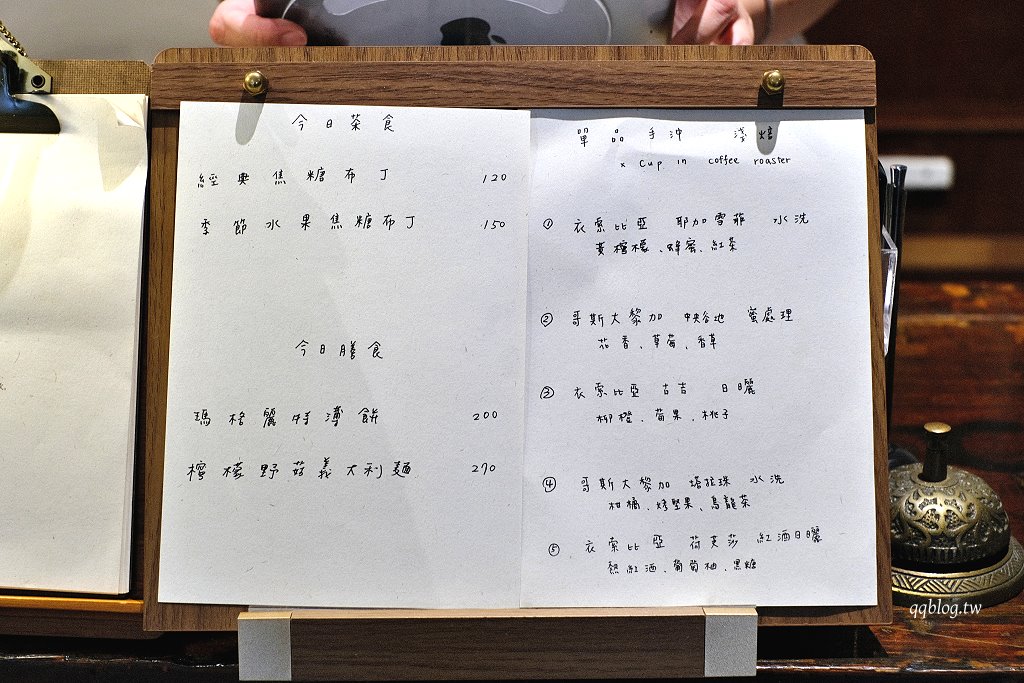 今日茶食
經典焦糖布丁 120
季節水果焦糖布丁 150
今日膳食
瑪格麗特薄餅 200
檸檬野菇義大利麵 270
單品手沖 淺焙
x Cup in coffee roaster
① 衣索比亞 耶加雪菲 水洗
黃檸檬、蜂蜜、紅茶
② 哥斯大黎加 中央谷地 蜜處理
花香、草莓、香草
③ 衣索比亞 古吉 日曬
柳橙、莓果、桃子
④ 哥斯大黎加 塔拉珠 水洗
柑橘、烤堅果、烏龍茶
⑤ 衣索比亞 荷芙莎 紅酒日曬
熱紅酒、葡萄柚、黑糖
qqblog.tw